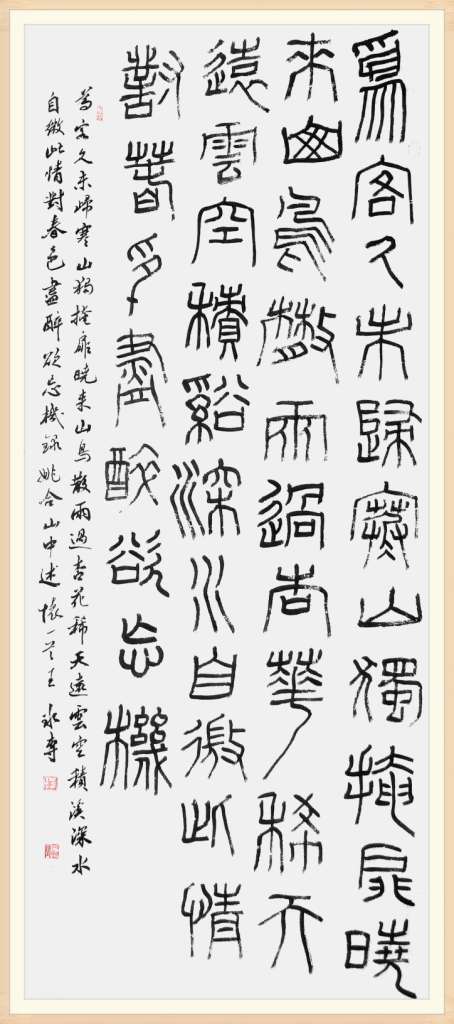 爲客久未歸寒山獨掩扉曉
來山鳥散雨過杏華稀天
遠雲空積谿深水自微此情
對春色盡醉欲忘機
爲客久未歸寒山獨掩扉曉來山鳥散雨過杏花稀天遠雲空積溪深水
自微此情對春色盡醉欲忘機錄姚合山中述懷 王永